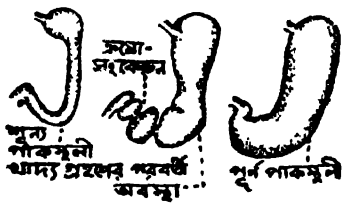 ক্রমো-
সংকোচন
শূন্য
পাকস্থলী
খাদ্য গ্রহণের পরবর্তী
অবস্থা
পূর্ণ পাকস্থলী